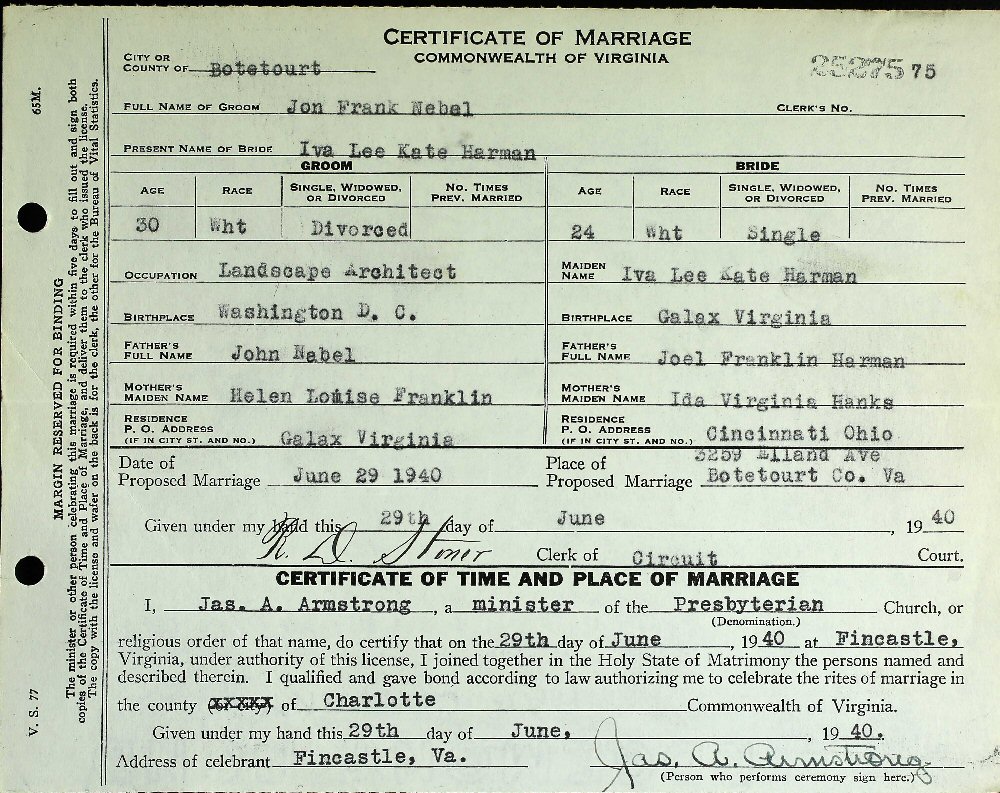 CERTIFICATE OF MARRIAGE
COMMONWEALTH OF VIRGINIA
CITY OR
COUNTY OF Botetourt
25275 75
FULL NAME OF GROOM Jon Frank Nebel CLERK'S NO.
PRESENT NAME OF BRIDE Iva Lee Kate Harman
GROOM BRIDE
AGE RACE SINGLE, WIDOWED, OR DIVORCED NO. TIMES PREV. MARRIED AGE RACE SINGLE, WIDOWED, OR DIVORCED NO. TIMES PREV. MARRIED
30 Wht Divorced 24 Wht Single
OCCUPATION Landscape Architect MAIDEN NAME Iva Lee Kate Harman
BIRTHPLACE Washington D. C. BIRTHPLACE Galax Virginia
FATHER'S FULL NAME John Nabel FATHER'S FULL NAME Joel Franklin Harman
MOTHER'S MAIDEN NAME Helen Louise Franklin MOTHER'S MAIDEN NAME Ida Virginia Hanks
RESIDENCE P. O. ADDRESS (IF IN CITY ST. AND NO.) Galax Virginia RESIDENCE P. O. ADDRESS (IF IN CITY ST. AND NO.) Cincinnati Ohio
3259 Elland Ave
Date of Proposed Marriage June 29 1940 Place of Proposed Marriage Botetourt Co. Va
Given under my hand this 29th day of June, 1940
R. D. Stoner Clerk of Circuit Court.
CERTIFICATE OF TIME AND PLACE OF MARRIAGE
I, Jas. A. Armstrong, a minister of the Presbyterian Church, or
(Denomination.)
religious order of that name, do certify that on the 29th day of June, 1940 at Fincastle,
Virginia, under authority of this license, I joined together in the Holy State of Matrimony the persons named and
described therein. I qualified and gave bond according to law authorizing me to celebrate the rites of marriage in
the county (or city) of Charlotte Commonwealth of Virginia.
Given under my hand this 29th day of June, 1940.
Address of celebrant Fincastle, Va. Jas. A. Armstrong
(Person who performs ceremony sign here.)
65M.
MARGIN RESERVED FOR BINDING
The minister or other person celebrating this marriage is required within five days to fill out and sign both
copies of the Certificate of Time and Place of Marriage, and deliver them to the clerk who issued the license.
The copy with the license and wafer on the back is for the clerk, the other for the Bureau of Vital Statistics.
V. S. 77